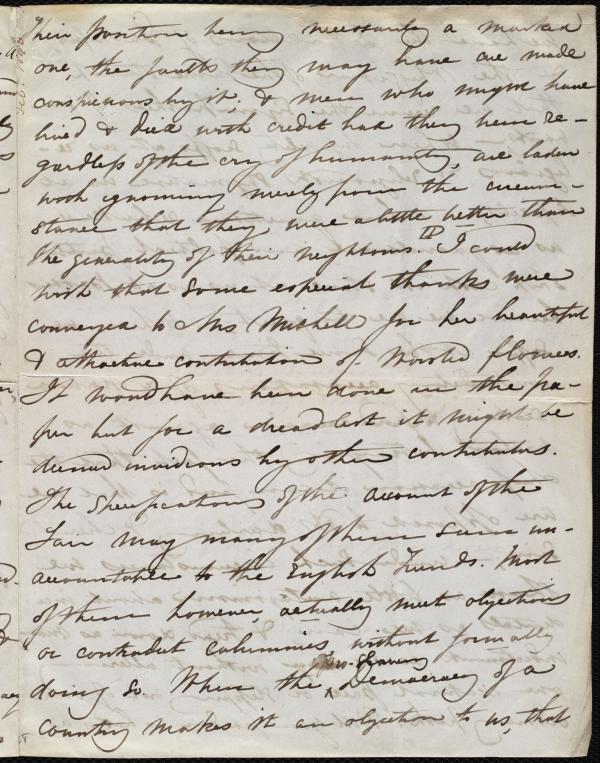 Their position being necessarily a marked
one, the faults they may have are made
conspicuous by it; & men who might have
lived & died with credit had they been re-
gardless of the cry of humanity, are laden
with ignominy merely from the circum-
stance that they were a little better than
the generality of their neighbours. I could
wish that some especial thanks were
conveyed to Mrs Michell for her beautiful
& attractive contribution of Worsted flowers.
It would have been done in the pa-
per but for a dread lest it might be
deemed invidious by other contributors.
The specifications of the account of the
Fair may many of them seem un-
accountable to the English Friends. Most
of them however, actually meet objections
or contradict calumnies without formally
doing so. When the pro-Slavery Democracy of a
country makes it an objection to us, that